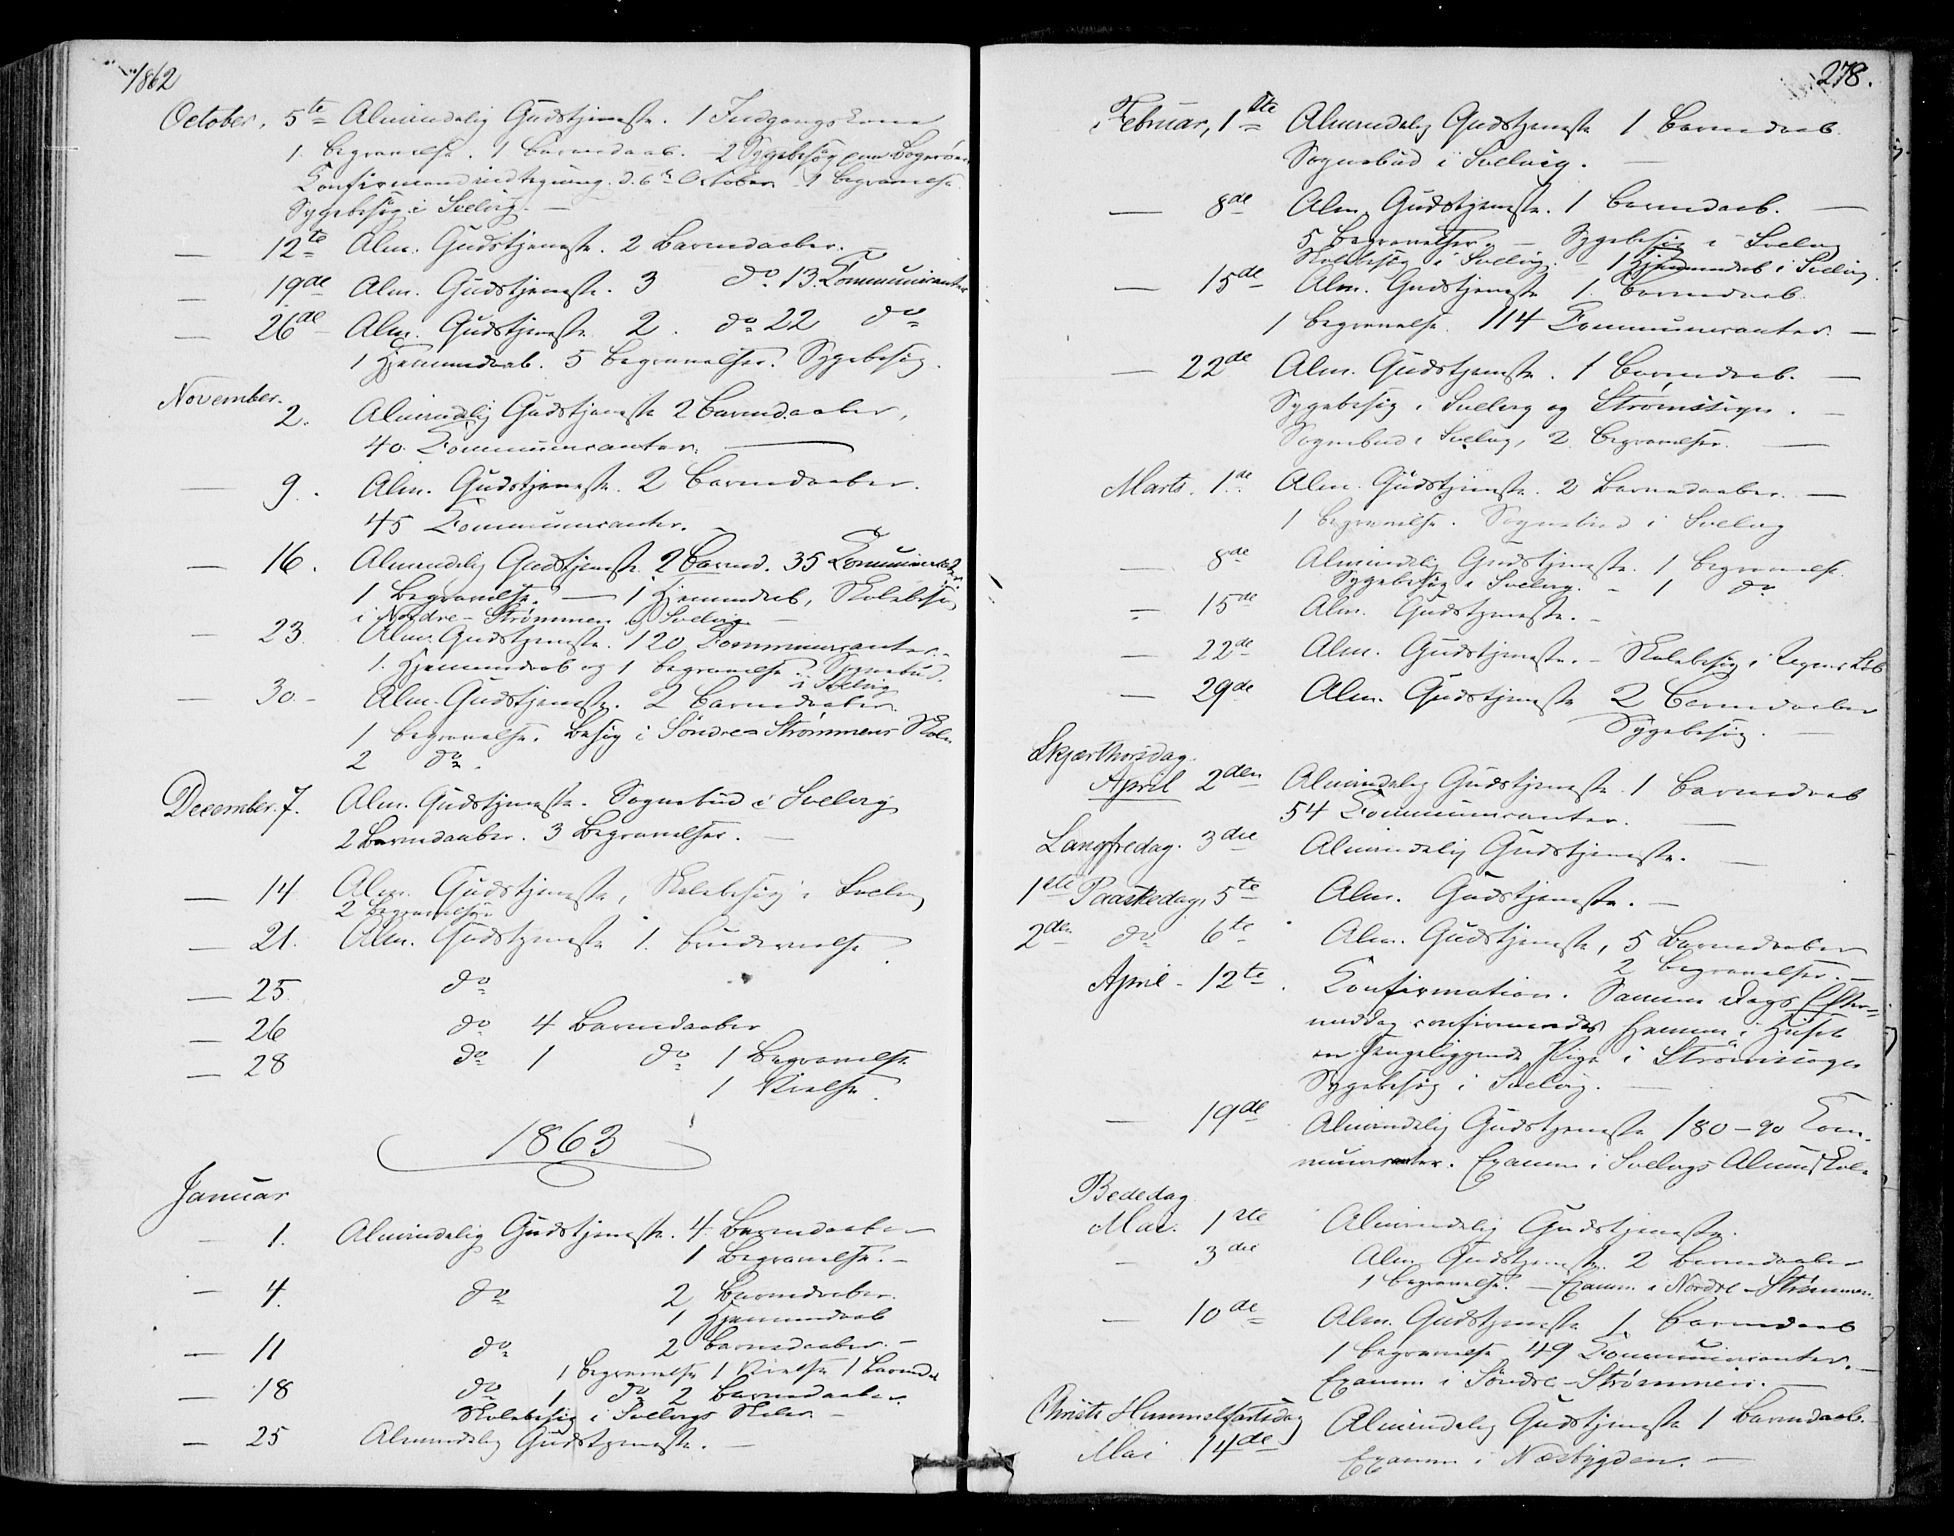 1862
October, 5te Almindelig Gudstjeneste. 1 Indgangskone
1 Begravelse. 1 Barnedaab. – 2 Sygebesøg
Confirmandindtegning. d. 6te October – 1 Begravelse.
Sygebesøg i Svelvig. –
– 12te Alm. Gudstjeneste. 2 Barnedaaber. –
– 19de Alm. Gudstjeneste. 3 do 13. Communicanter
– 26de Alm. Gudstjeneste 2. do 22 do
1 Hjemmedaab. 5 Begravelser. Sygebesøg.
November.
2. Almindelig Gudstjeneste 2 Barnedaaber,
40. Communicanter. –
– 9. Alm. Gudstjeneste. 2 Barnedaaber.
45 Communicanter.
– 16. Almindelig Gudstjeneste. 2 Barned. 35 Communicanter.
1 Begravelse. – 1 Hjemmedaab, Skolebesøg
i Nordre-Strømmen og Svelvig –
– 23. Alm. Gudstjeneste. 120 Communicanter. –
1. Hjemmedaab og 1 Begravelse. Sognebud.
i Svelvig
– 30 – Alm. Gudstjeneste. 2 Barnedaaber.
1 Begravelse. Besøg i Søndre-Strømmens Skole
2 do.
December. 7. Alm. Gudstjeneste. Sognebud i Svelvig
2 Barnedaaber. 3 Begravelser. –
– 14 Alm. Gudstjeneste, Skolebesøg i Svelvig
2 Begravelser
– 21. Alm. Gudstjeneste 1. Brudevielse.
– 25 do
– 26 do 4 Barnedaaber
– 28 do 1 do 1 Begravelse
1 Vielse.
1863
Januar
– 1. Almindelig Gudstjeneste. 4 Barnedaaber
1 Begravelse. –
– 4. do 2 Barnedaaber.
1 Hjemmedaab
– 11 do 2 Barnedaaber. –
1 Begravelse 1 Vielse 1 Barned
– 18 do 1 do 2 Barnedaaber.
Skolebesøg i Svelvigs Skoler –
– 25 Almindelig Gudstjeneste. –
278.
Februar, 1ste Almindelig Gudstjeneste 1 Barnedaab.
Sognebud i Svelvig. –
– 8de Alm. Gudstjeneste. 1 Barnedaab. –
5 Begravelser. – Sygebesøg i Svelvig
Skolebesøg i Svelvig. – 1 Hjemmedaab i Svelvig.
– 15de Alm. Gudstjeneste 1 Barnedaab.
1 Begravelse. 114 Communicanter. –
– 22de Alm. Gudstjeneste. 1 Barnedaab. –
Sygebesøg i Svelvig og Strømsiger. –
Sognebud i Svelvig, 2 Begravelser. –
Marts. 1de Alm. Gudstjeneste. 2 Barnedaaber. –
1 Begravelse. Sognebud i Svelvig
– 8de Almindelig Gudstjeneste. 1 Begravelse.
Sygebesøg i Svelvig. – 1 do
– 15de Alm. Gudstjeneste. –
– 22de Alm. Gudstjeneste. – Skolebesøg i
– 29de Alm. Gudstjeneste 2 Barnedaaber
Sygebesøg. –
Skjærthorsdag.
April 2den Almindelig Gudstjeneste. 1 Barnedaab
54 Communicanter. –
Langfredag. 3die Almindelig Gudstjeneste. –
1ste Paaskedag, 5te Alm. Gudstjeneste. –
2den do 6te Alm. Gudstjeneste, 5 Barnedaaber
2 Begravelser. –
April – 12te. Confirmation. Samme Dags Efter=
middag confirmeredes hjemme i Huset
en sengeliggende Pige i Strømsiger
Sygebesøg i Svelvig. –
– 19de Almindelig Gudstjeneste 180–90 Com-
municanter. Examen i Svelvigs Almueskole
Bededag
Mai. 1ste Almindelig Gudstjeneste.
– 3die Alm. Gudstjeneste. 2 Barnedaaber
1 Begravelse. – Examen i Nordre-Strømmen.
– 10de Alm. Gudstjeneste 1 Barnedaab
1 Begravelse 49 Communicanter. –
Examen i Søndre-Strømmen. –
Christi Himmelfartsdag
Mai 14de Almindelig Gudstjeneste 1 Barnedaab.
Examen i Næsbygden. –